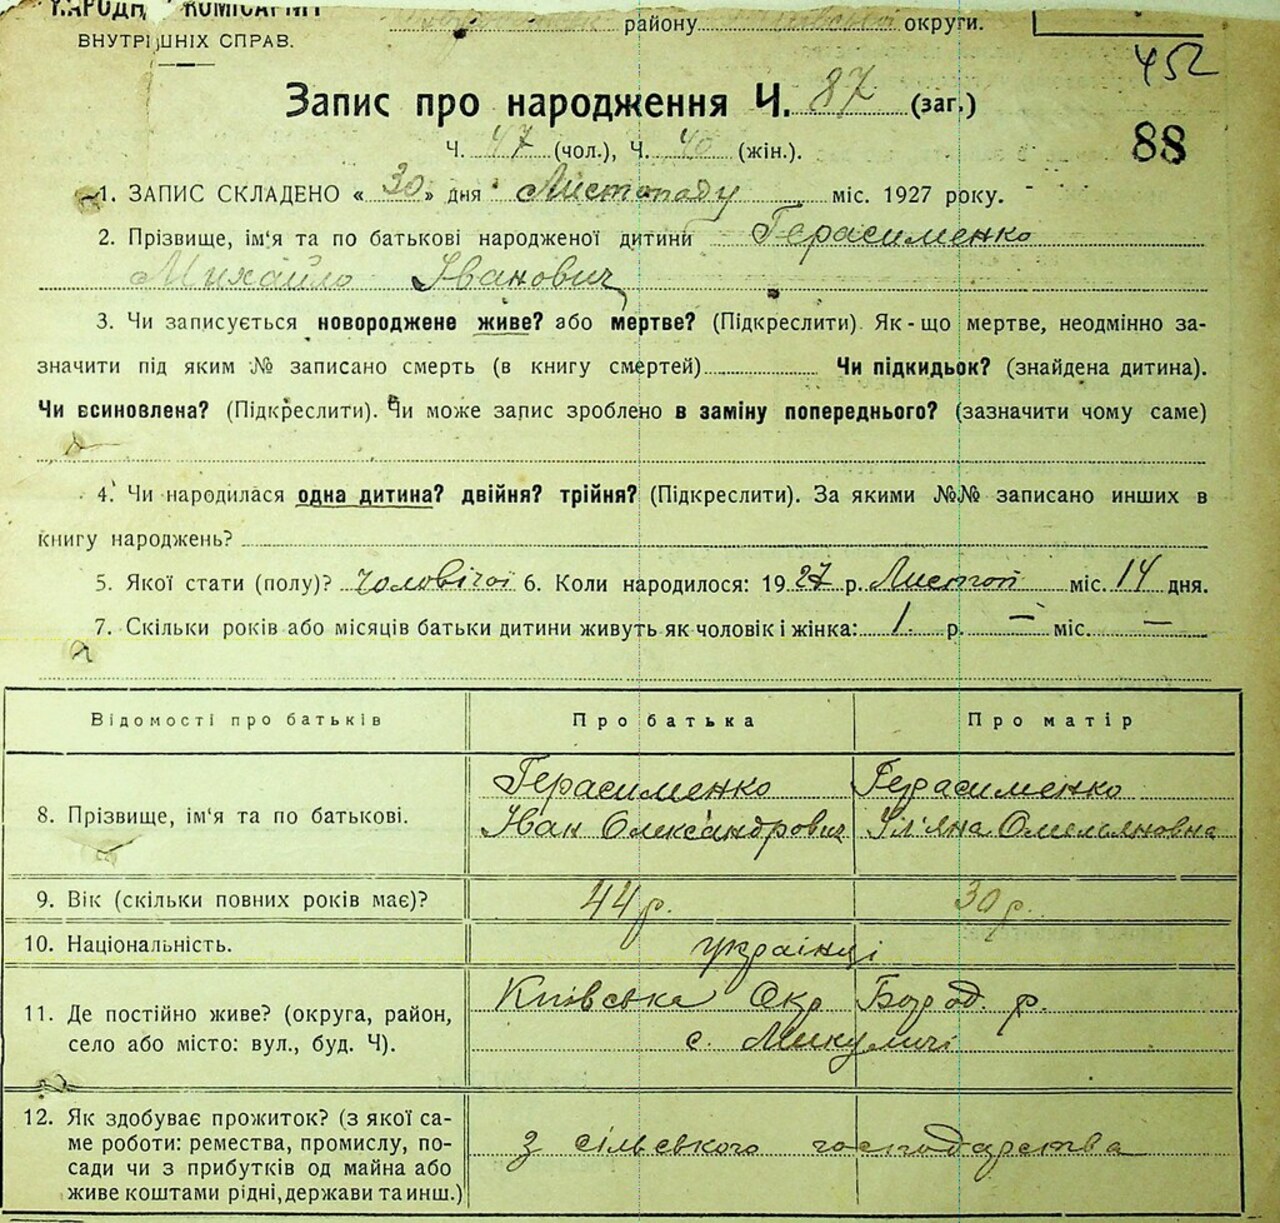 НАРОДН. КОМІСАРІЯТ
ВНУТРІШНІХ СПРАВ.
району округи.
452
Запис про народження Ч. 87 (заг.)
88
Ч. 47 (чол.), Ч. 40 (жін.).
1. ЗАПИС СКЛАДЕНО « 30 » дня Листопаду міс. 1927 року.
2. Прізвище, ім'я та по батькові народженої дитини Герасименко
Михайло Іванович
3. Чи записується новороджене живе? або мертве? (Підкреслити). Як-що мертве, неодмінно за-
значити під яким № записано смерть (в книгу смертей) Чи підкидьок? (знайдена дитина).
Чи всиновлена? (Підкреслити). Чи може запис зроблено в заміну попереднього? (зазначити чому саме)
4. Чи народилася одна дитина? двійня? трійня? (Підкреслити). За якими №№ записано инших в
книгу народжень?
5. Якої стати (полу)? чоловічої 6. Коли народилося: 1927 р. Листоп міс. 14 дня.
7. Скільки років або місяців батьки дитини живуть як чоловік і жінка: 1 р. — міс. —
Відомості про батьків Про батька Про матір
Герасименко Герасименко
8. Прізвище, ім'я та по батькові. Іван Олександрович Уляна Омеляновна
9. Вік (скільки повних років має)? 44 р. 30 р.
10. Національність. українці
Київська Окр Бород. р.
11. Де постійно живе? (округа, район,
село або місто: вул., буд. Ч). с. Микуличі
12. Як здобуває прожиток? (з якої са-
ме роботи: ремества, промислу, по- з сільського господарства
сади чи з прибутків од майна або
живе коштами рідні, держави та инш.)